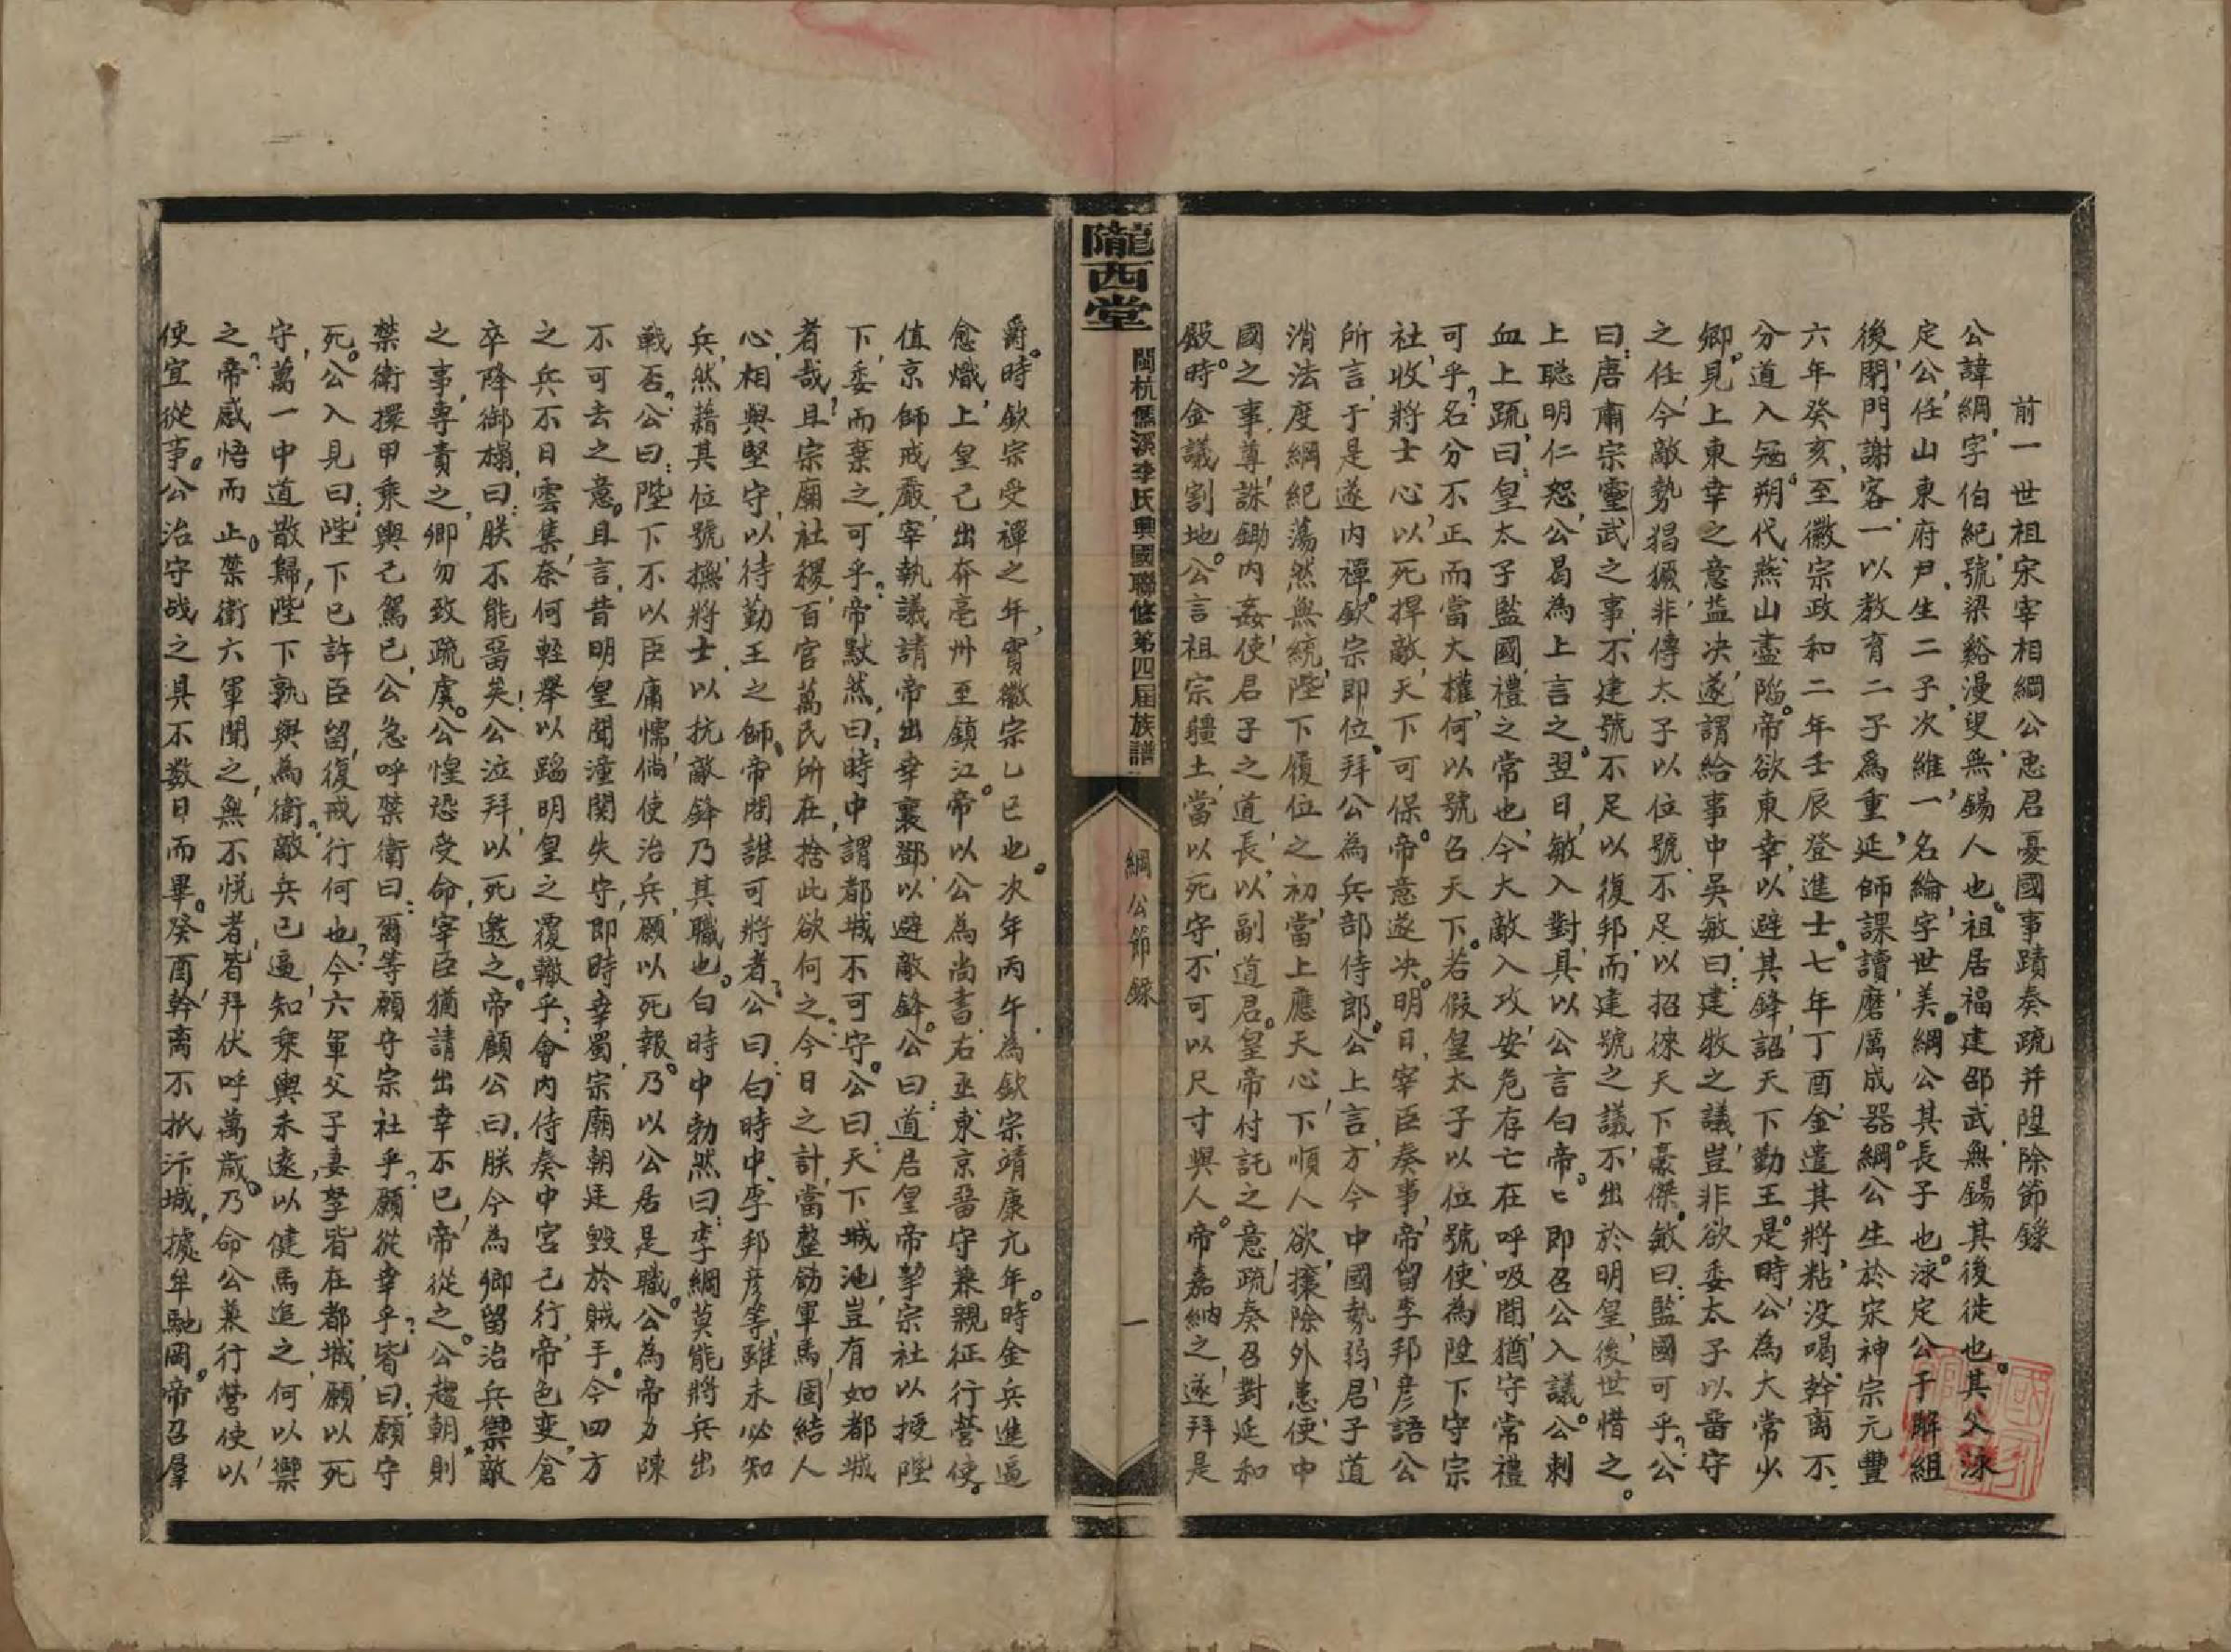 前一世祖宋宰相綱公忠君憂國事蹟奏疏并陞除節錄
公諱綱，字伯紀，號梁谿漫叟，無錫人也。祖居福建邵武，無錫其後徙也。其父泳
定公，任山東府尹，生二子，次維，一名綸，字世美。綱公其長子也。泳定公于解組
後，閉門謝客，一以教育二子爲重，延師課讀，磨厲成器。綱公生於宋神宗元豐
六年癸亥，至徽宗政和二年壬辰登進士。七年丁酉，金遣其將，粘没喝、幹离不、
分道入冦。朔代燕山盡陷。帝欲東幸，以避其鋒，詔天下勤王。是時，公為大常少
卿。見上東幸之意益决，遂謂給事中吳敏曰：建牧之議，豈非欲委太子以畱守
之任，今敵勢猖獗，非傳太子以位號，不足以招徠天下豪傑。敏曰：監國可乎？公
曰：唐肅宗靈武之事，不建號不足以復邦，而建號之議，不出於明皇，後世惜之。
上聪明仁恕，公曷為上言之。翌日，敏入對，具以公言白帝。〻即召公入議。公刺
血上疏曰：皇太子監國，禮之常也，今大敵入攻，安危存亡在呼吸間，猶守常禮
可乎？名分不正而當大權，何以號召天下。若假皇太子以位號，使為陛下守宗
社，收將士心，以死捍敵，天下可保。帝意遂决。明日，宰臣奏事，帝留李邦彦語公
所言，于是遂内禪。欽宗即位。拜公為兵部侍郎。公上言，方今中國勢弱，君子道
消，法度綱紀蕩然無統，陛下履位之初，當上應天心，下順人欲，攘除外患，便中
國之事，尊誅鋤内姦，使君子之道長，以副道君。皇帝付託之意，疏奏召對延和
殿。時金議割地。公言祖宗疆土，當以死守，不可以尺寸與人。帝嘉納之，遂拜是
隴西堂
閩杭儒溪李氏興國聯修第四届族譜
綱公節錄
一
爵。時，欽宗受禪之年，實徽宗乙巳也。次年丙午，為欽宗靖康元年。時金兵進逼
愈熾，上皇已出奔亳州至鎮江。帝以公為尚書，右丞東京畱守兼親征行营使。
值京師戒嚴，宰執議請帝出幸襄鄧，以避敵鋒。公曰：道君皇帝挈宗社以授陛
下，委而棄之，可乎？帝默然，曰：時中，謂都城不可守。公曰：天下城池，豈有如都城
者哉，且宗廟社稷，百官萬民所在，捨此欲何之？今日之計，當整飭軍馬，固結人
心，相與堅守，以待勤王之師。帝問誰可將者？公曰：白時中、李邦彦等，雖未必知
兵，然藉其位號，撫將士，以抗敵鋒乃其職也。白時中勃然曰：李綱莫能將兵出
戰否？公曰：陛下不以臣庸懦，倘使治兵，願以死報。乃以公居是職。公為帝力陳
不可去之意。且言，昔明皇聞潼関失守，即時幸蜀，宗廟朝廷毀於賊手。今四方
之兵不日雲集，奈何輕舉以蹈明皇之覆轍乎？會内侍奏中宮己行，帝色变，倉
卒降御榻，曰：朕不能畱矣！公泣拜，以死邀之。帝顧公曰，朕今為卿留治兵禦敵
之事，專責之，卿勿致疏虞。公惶恐受命，宰臣猶請出幸不已，帝從之。公趨朝，則
禁衛擐甲乘輿己駕已，公急呼禁衛曰：爾等願守宗社乎？願從幸乎？皆曰：願守
死。公入見曰：陛下已許臣留，復戒行何也？今六軍父子，妻孥皆在都城，願以死
守，萬一中道散歸，陛下孰與為衛？敵兵已逼，知乘輿未遠以健馬追之，何以禦
之？帝感悟而止。禁衛六軍聞之，無不悦者，皆拜伏呼萬歲。乃命公兼行營使，以
便宜從事。公治守战之具不数日而畢。癸酉，斡离不抵汴城，據牟駞岡。帝召羣